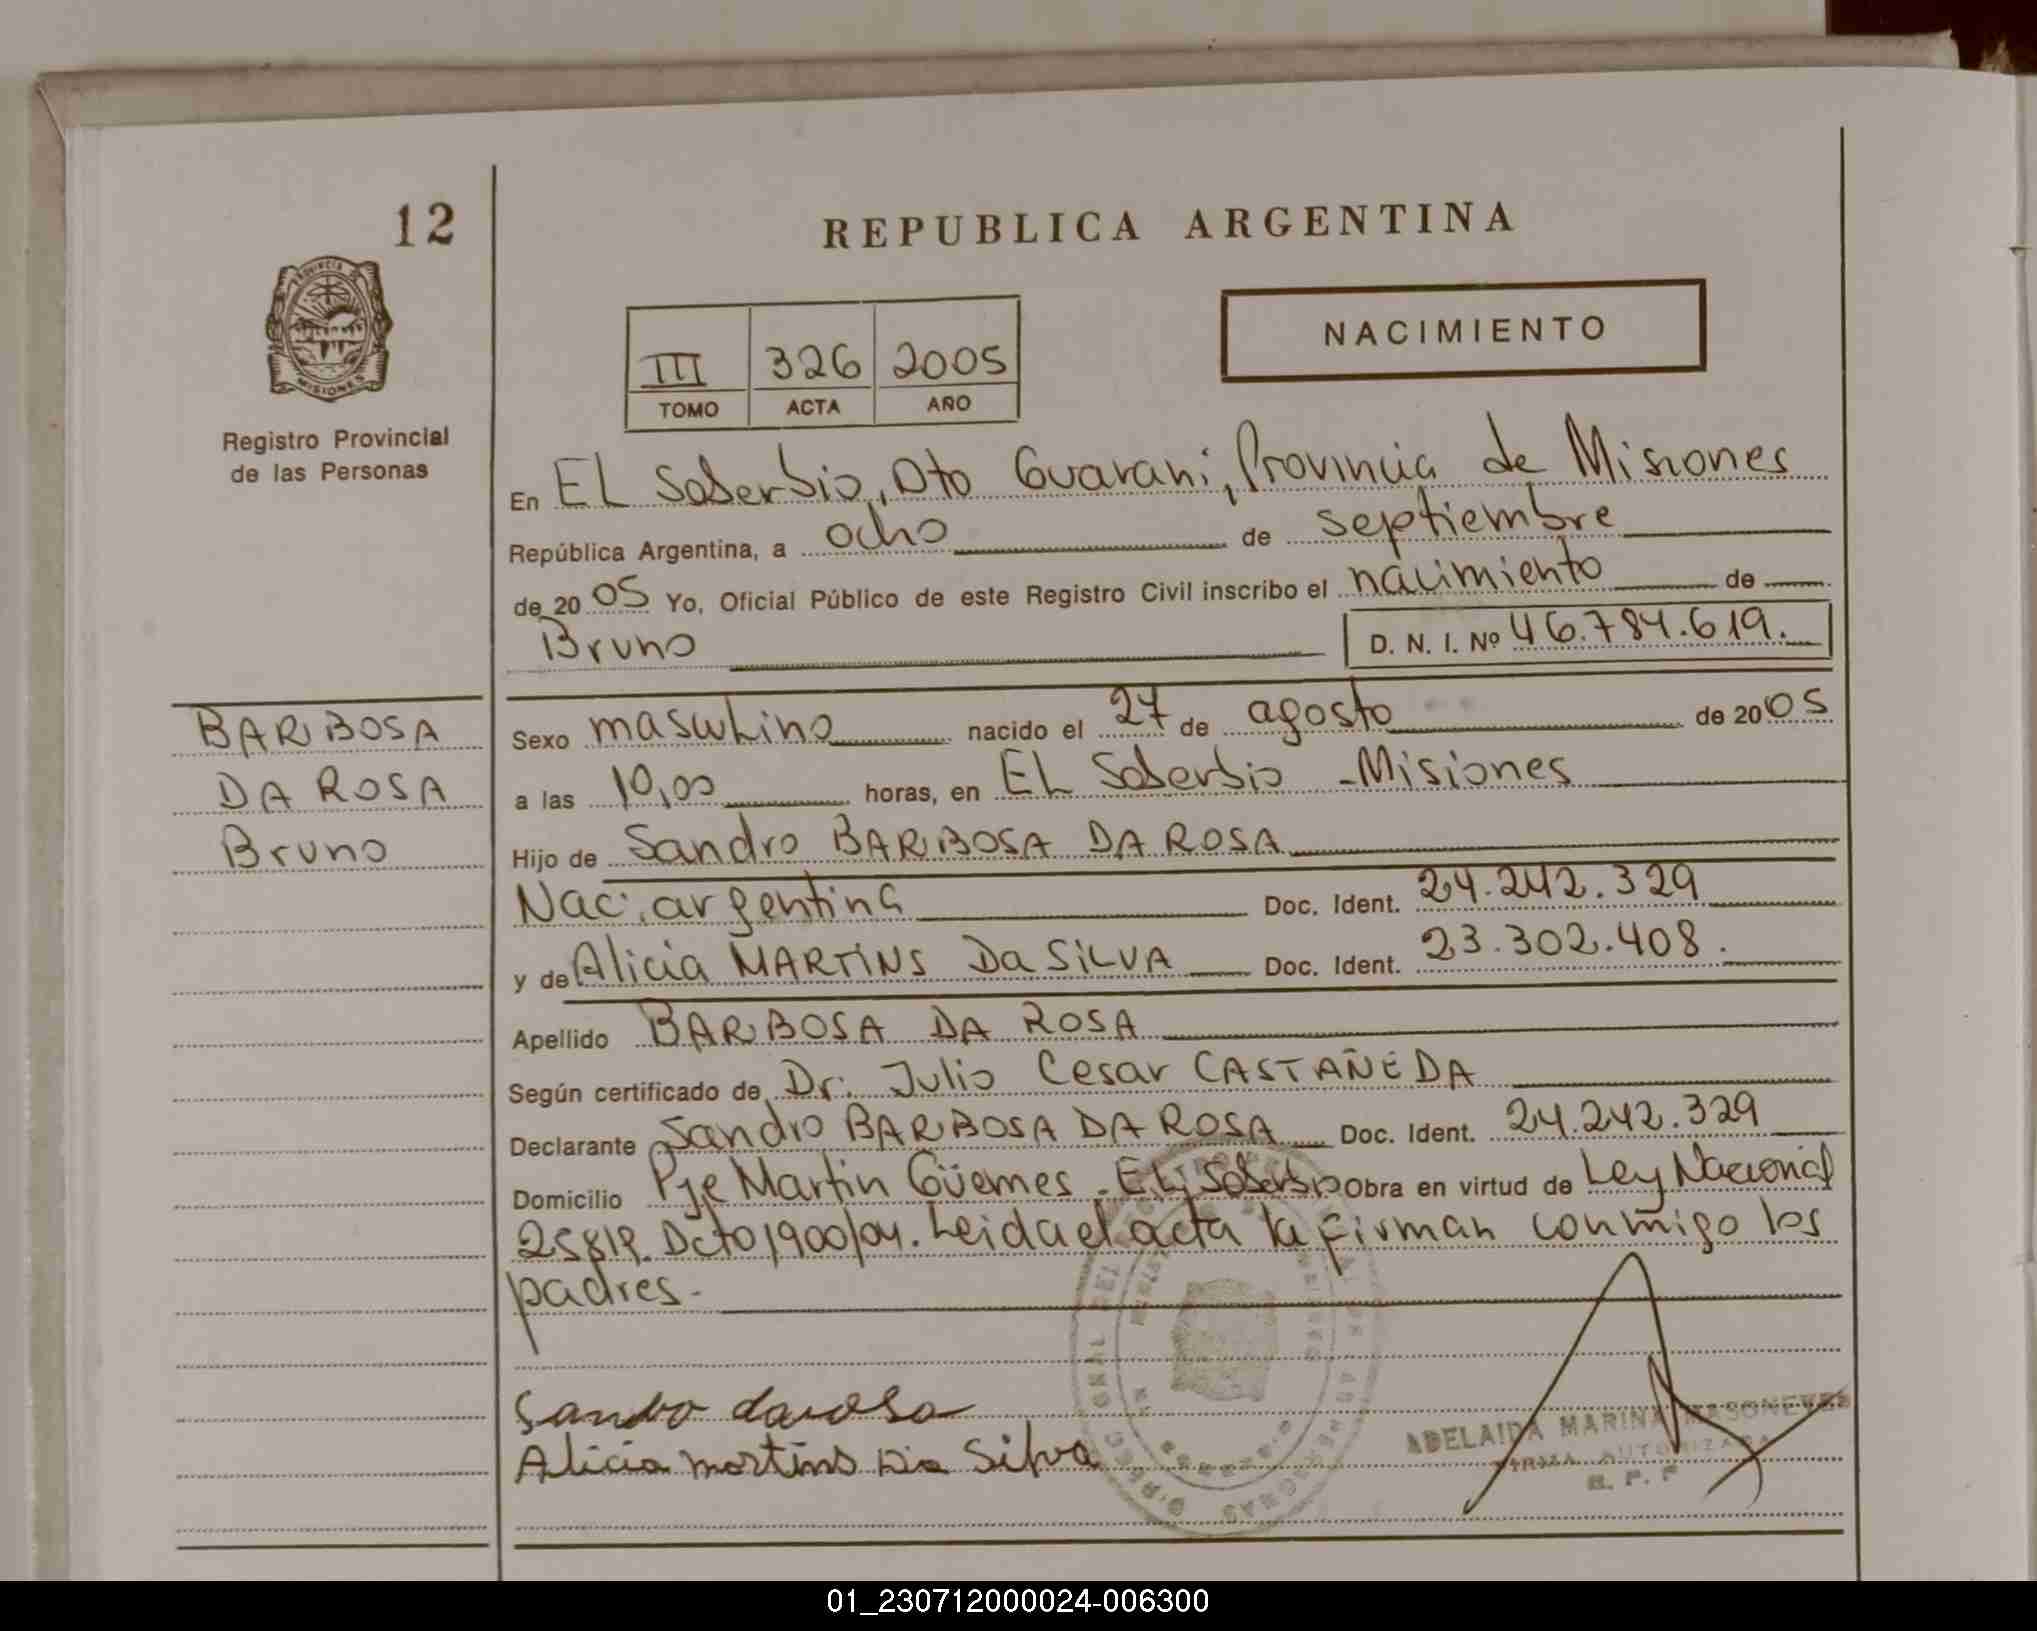 12
REPUBLICA ARGENTINA
PROVINCIA DE
MISIONES
Registro Provincial
de las Personas
NACIMIENTO
III 326 2005
TOMO ACTA AÑO
En EL Soberbio, Dto Guarani, Provincia de Misiones
República Argentina, a ocho de septiembre
de 20 05 Yo, Oficial Público de este Registro Civil inscribo el nacimiento de
Bruno D. N. I. Nº 46.784.619.
BARBOSA
DA ROSA
Bruno
Sexo masculino nacido el 27 de agosto de 20 05
a las 10,00 horas, en EL Soberbio - Misiones
Hijo de Sandro BARBOSA DA ROSA
Nac. argentina Doc. Ident. 24.242.329
y de Alicia MARTINS Da SILVA Doc. Ident. 23.302.408.
Apellido BARBOSA DA ROSA
Según certificado de Dr. Julio Cesar CASTAÑEDA
Declarante Sandro BARBOSA DA ROSA Doc. Ident. 24.242.329
Domicilio Pje Martin Güemes - EL Soberbio Obra en virtud de Ley Nacional
25819. Dcto 1900/04. Leida el acta la firman conmigo los
padres.
Sandro darosa
Alicia martins Da Silva
ADELAIDA MARINA
FIRMA AUTORIZADA
R. P. P
01_230712000024-006300